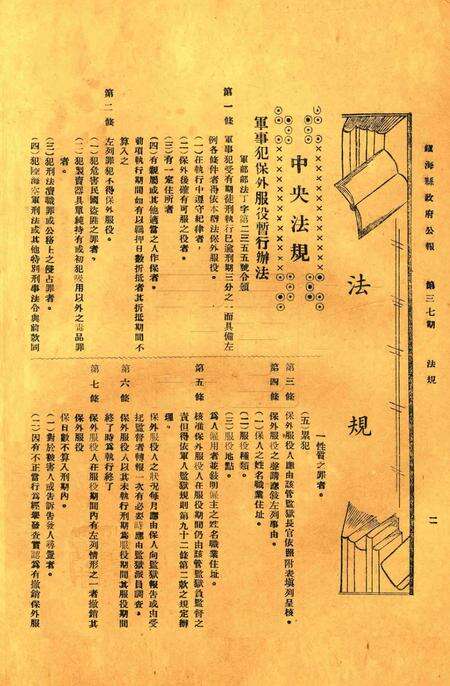 鎮海縣政府公報　第三七期　法規　二
法規
中央法規
軍事犯保外服役暫行辦法
軍部部法丁字第二三五五號令頒
第一條　軍事犯受有期徒刑執行已逾刑期三分之一而具備左
例各條件者得依本辦法保外服役。
(一)在執行中遵守紀律者，
(二)保外後確有可服之役者。
(三)有一定住所者
(四)有親屬或其他適當之人作保者。
前項執行期間如有以羈押日數折抵者其折抵期間不
算入之
第二條　左列罪犯不得保外服役。
(一)犯危害民國盜匪之罪者。
(二)犯製賣器具單純持有或初犯吸用以外之毒品罪
者。
(三)犯刑法瀆職罪或公務上之侵占罪者。
(四)犯陸海空軍刑法或其他特別刑事法令與前款同
一性質之罪者。
(五)累犯
第三條　保外服役人應由該管監獄長官依照附表填列呈核。
第四條　保外服役之聲請應敘左列事由。
(一)保人之姓名職業住址。
(二)服役種類。
(三)服役地點。
為人僱用者並敘明僱主之姓名職業住址。
第五條　核准保外服役人在服役期間仍由該管監獄員監督之
責但得依軍人監獄規則第九十二條第二款之規定辦
理。
保外服役人之狀況每月應由保人向監獄報告或由受
託監督者轉報一次有必要時應由監獄派員調查。
第六條　保外服役人以其未執行刑期為服役期間其服役期間
終了時為執行終了
第七條　保外服役人在服役期間內有左列情形之一者撤銷其
保外服役
保日數不算入刑期內。
(一)對於被害人或告訴告發人尋釁者。
(二)因有不正當行為經舉發查實認為有撤銷保外服